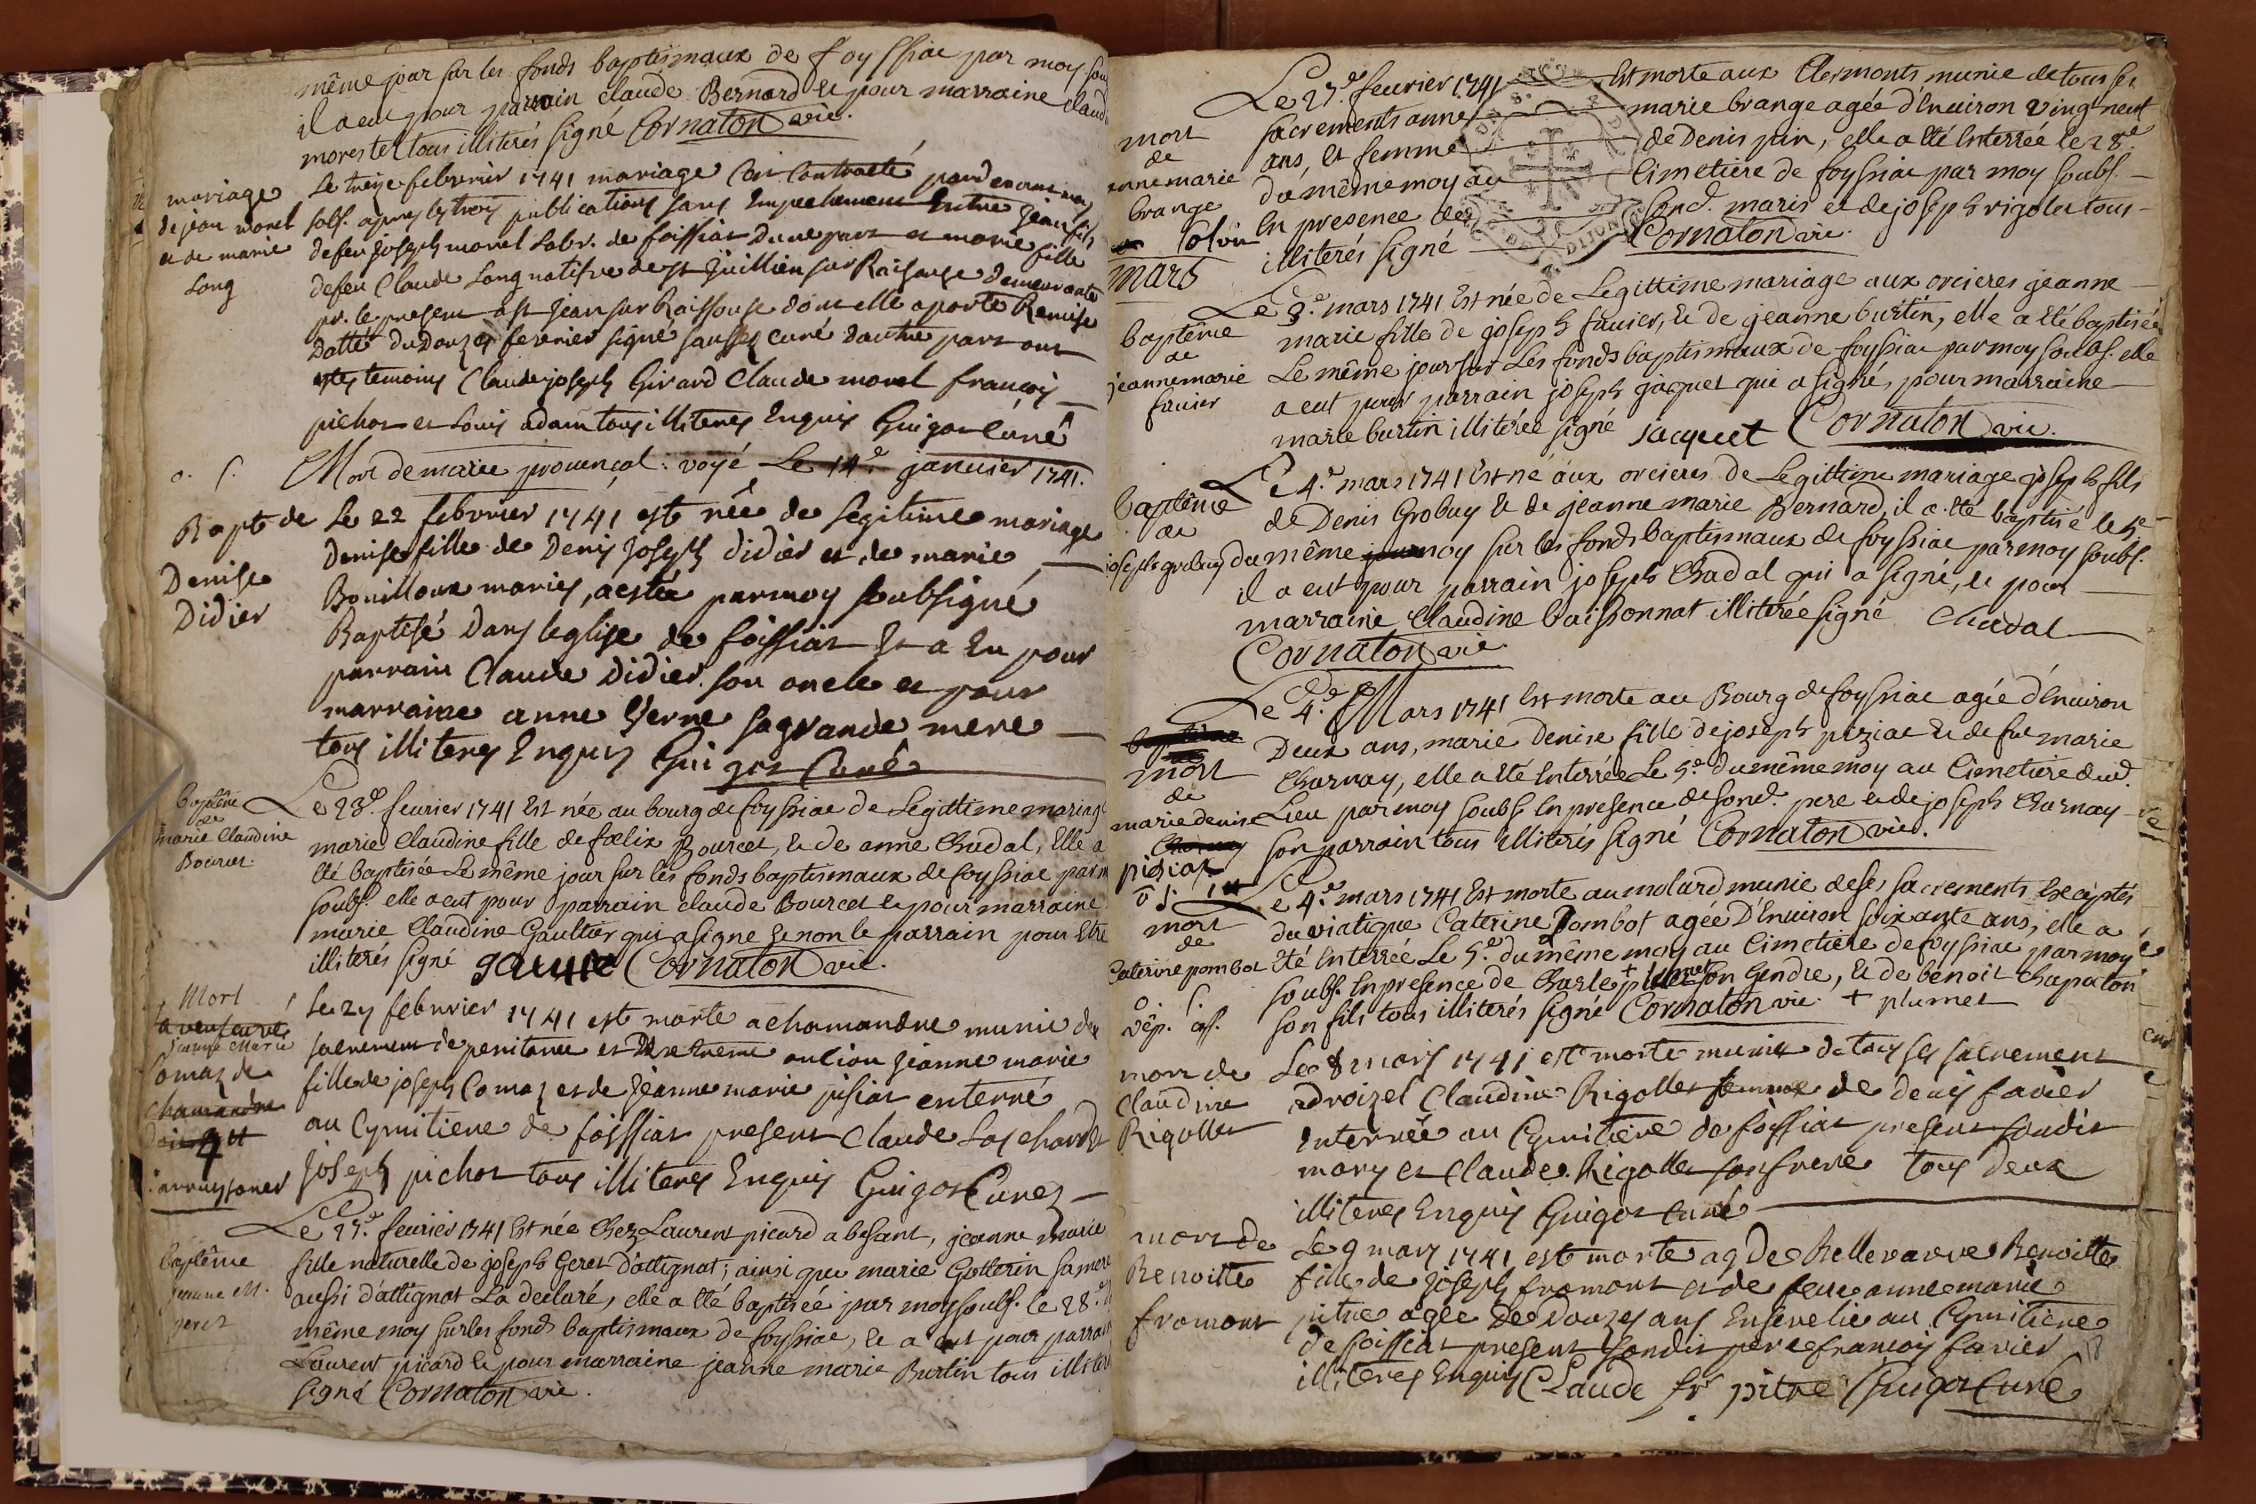 même jour sur les fonds baptismaux de foyssiac par moy
il a eut pour parrain claude Bernard et pour marraine
morestel tous illiterés signé Cornaton vic.
mariage
de jean morel
et de marie
Long
Le treize febvrier 1741 mariage
sobs. apres les trois publications sans Empechement Entre jean fils
de feu joseph morel Labr. de foissiat Dune part et marie fille
de feu Claude Long natifve de st juillien sur Raisouse Demeurante
pr. le present a st jean sur Raissouse dont elle aporte Remise
Datté du Douze fevrier signé cure Dautre part ont
estes temoins Claude joseph Girard Claude morel françois
pichot et Louis adam tous illiteres Enquis Guigot Curé
o. s. Mort de marie provençal : voyé Le 14.e janvier 1741.
Bapt de
Denise
Didier
Le 22 febvrier 1741 est née de legitime mariage
Denise fille de Denis joseph didier et de marie
Bouilloux maries, a estée par moy soubsigné
Baptisé Dans leglise de foissiat Et a Eu pour
parrain Claude Didier son oncle et pour
marraine anne Verne sa grande mere
tous illiteres Enquis Guigot Curé
baptême
de
marie Claudine
Bourcet.
Le 23.e fevrier 1741 Est née au bourg de foyssiac de Legittime mariage
marie Claudine fille de fœlix Bourcet, et de anne Chadal, Elle a
été baptisée Le même jour sur les fonds baptismaux de foyssiac par
soubs. elle a eut pour parrain claude Bourcet et pour marraine
marie Claudine Gaultier qui a signe et non le parrain pour Etre
illiterés signé Cornaton vic.
Mort
jeanne Marie
Comaz de
chamandre
Le 27 febvrier 1741 est morte a chamandre munie des
sacrement de penitence et Dextreme onction jeanne marie
fille de joseph Comaz et de jeanne marie pisiat enterré
au Cymitiere de foissiat present Claude
joseph pichot tous illiteres Enquis Guigot Curez
baptême
jeanne M.
geret
Le 27.e fevrier 1741 Est née Chez Laurent picard a besant, jeanne marie
fille naturelle de joseph Geret d'attignat; ainsi que marie Gotterin sa mere
aussi d'attignat La declaré, elle a été baptisée par moy soubs. le 28.e
même moy sur les fonds baptismaux de foyssiac, et a eut pour parrain
Laurent picard et pour marraine jeanne marie Burtin tous
signé Cornaton vic.
mort
de
anne marie
brange
Le 27.e fevrier 1741 Est morte aux Clermonts munie de tous ses
sacrements anne marie brange agée d'Environ vingt neuf
ans, et femme de Denis juin, elle a été Enterrée le 28.e
du même moy au Cimetiere de foyssiac par moy soubs.
En presence de sond. maris et de joseph rigolet tous
illiterés signé Cornaton vic.
mars
baptême
de
jeanne marie
favier
Le 3.e mars 1741 Est née de Legittime mariage aux orcieres jeanne
marie fille de joseph favier, et de jeanne burtin, elle a été baptisée
Le même jour sur Les fonds baptismaux de foyssiac par moy soubs. elle
a eut pour parrain joseph jacquet qui a signé, pour marraine
marie burtin illiterée signé jacquet Cornaton vic.
baptême
de
joseph grobuy
Le 4.e mars 1741 Est né aux orcieres de Legittime mariage joseph fils
de Denis Grobuy et de jeanne marie Bernard, il a été baptisé le 5.e
du même moy sur les fonds baptismaux de foyssiac par moy soubs.
il a eut pour parrain joseph Chadal qui a signé, et pour
marraine Claudine baissonnat illiterée signé Chadal
Cornaton vic
mort
de
marie denise
pisiat
Le 4.e Mars 1741 Est morte au Bourg de foyssiac agée d'Environ
Deux ans, marie denise fille de joseph piziac et de fue marie
Charnay, elle a été Enterrée Le 5.e du même moy au Cimetiere dud.
Lieu par moy soubs En presence de sond. pere et de joseph Charnay
son parrain tous illiterés signé Cornaton vic.
mort
de
Caterine pombot
Le 4.e mars 1741 Est morte au molard munie de ses sacrements Exceptés
du viatique Caterine Pombot agée D'Environ soixante ans, elle a
été Enterrée Le 5.e du même moy au Cimetiere de foyssiac par moy
soubs. En presence de Charle + son Gendre, et de benoit Chapaton
son fils tous illiterés signé Cornaton vic. + plumet
mort de
Claudine
Rigollet
Le 8 mars 1741 est morte munie de tous ses sacrement
a droizel Claudine Rigollet femme de denis favier
Enterrée au Cymitiere de foissiat present sondit
mary et Claude Rigollet son frere tous deux
illiteres Enquis Guigot curé
mort de
Benoitte
fromont
Le 9 mars 1741 est morte Benoitte
fille de joseph fromont et de feue anne marie
pitre agée De Douzes ans Ensevelie au Cymitiere
de foissiat present sondit pere francois favier
illiteres Enquis Claude fr pitre Guigot Curé